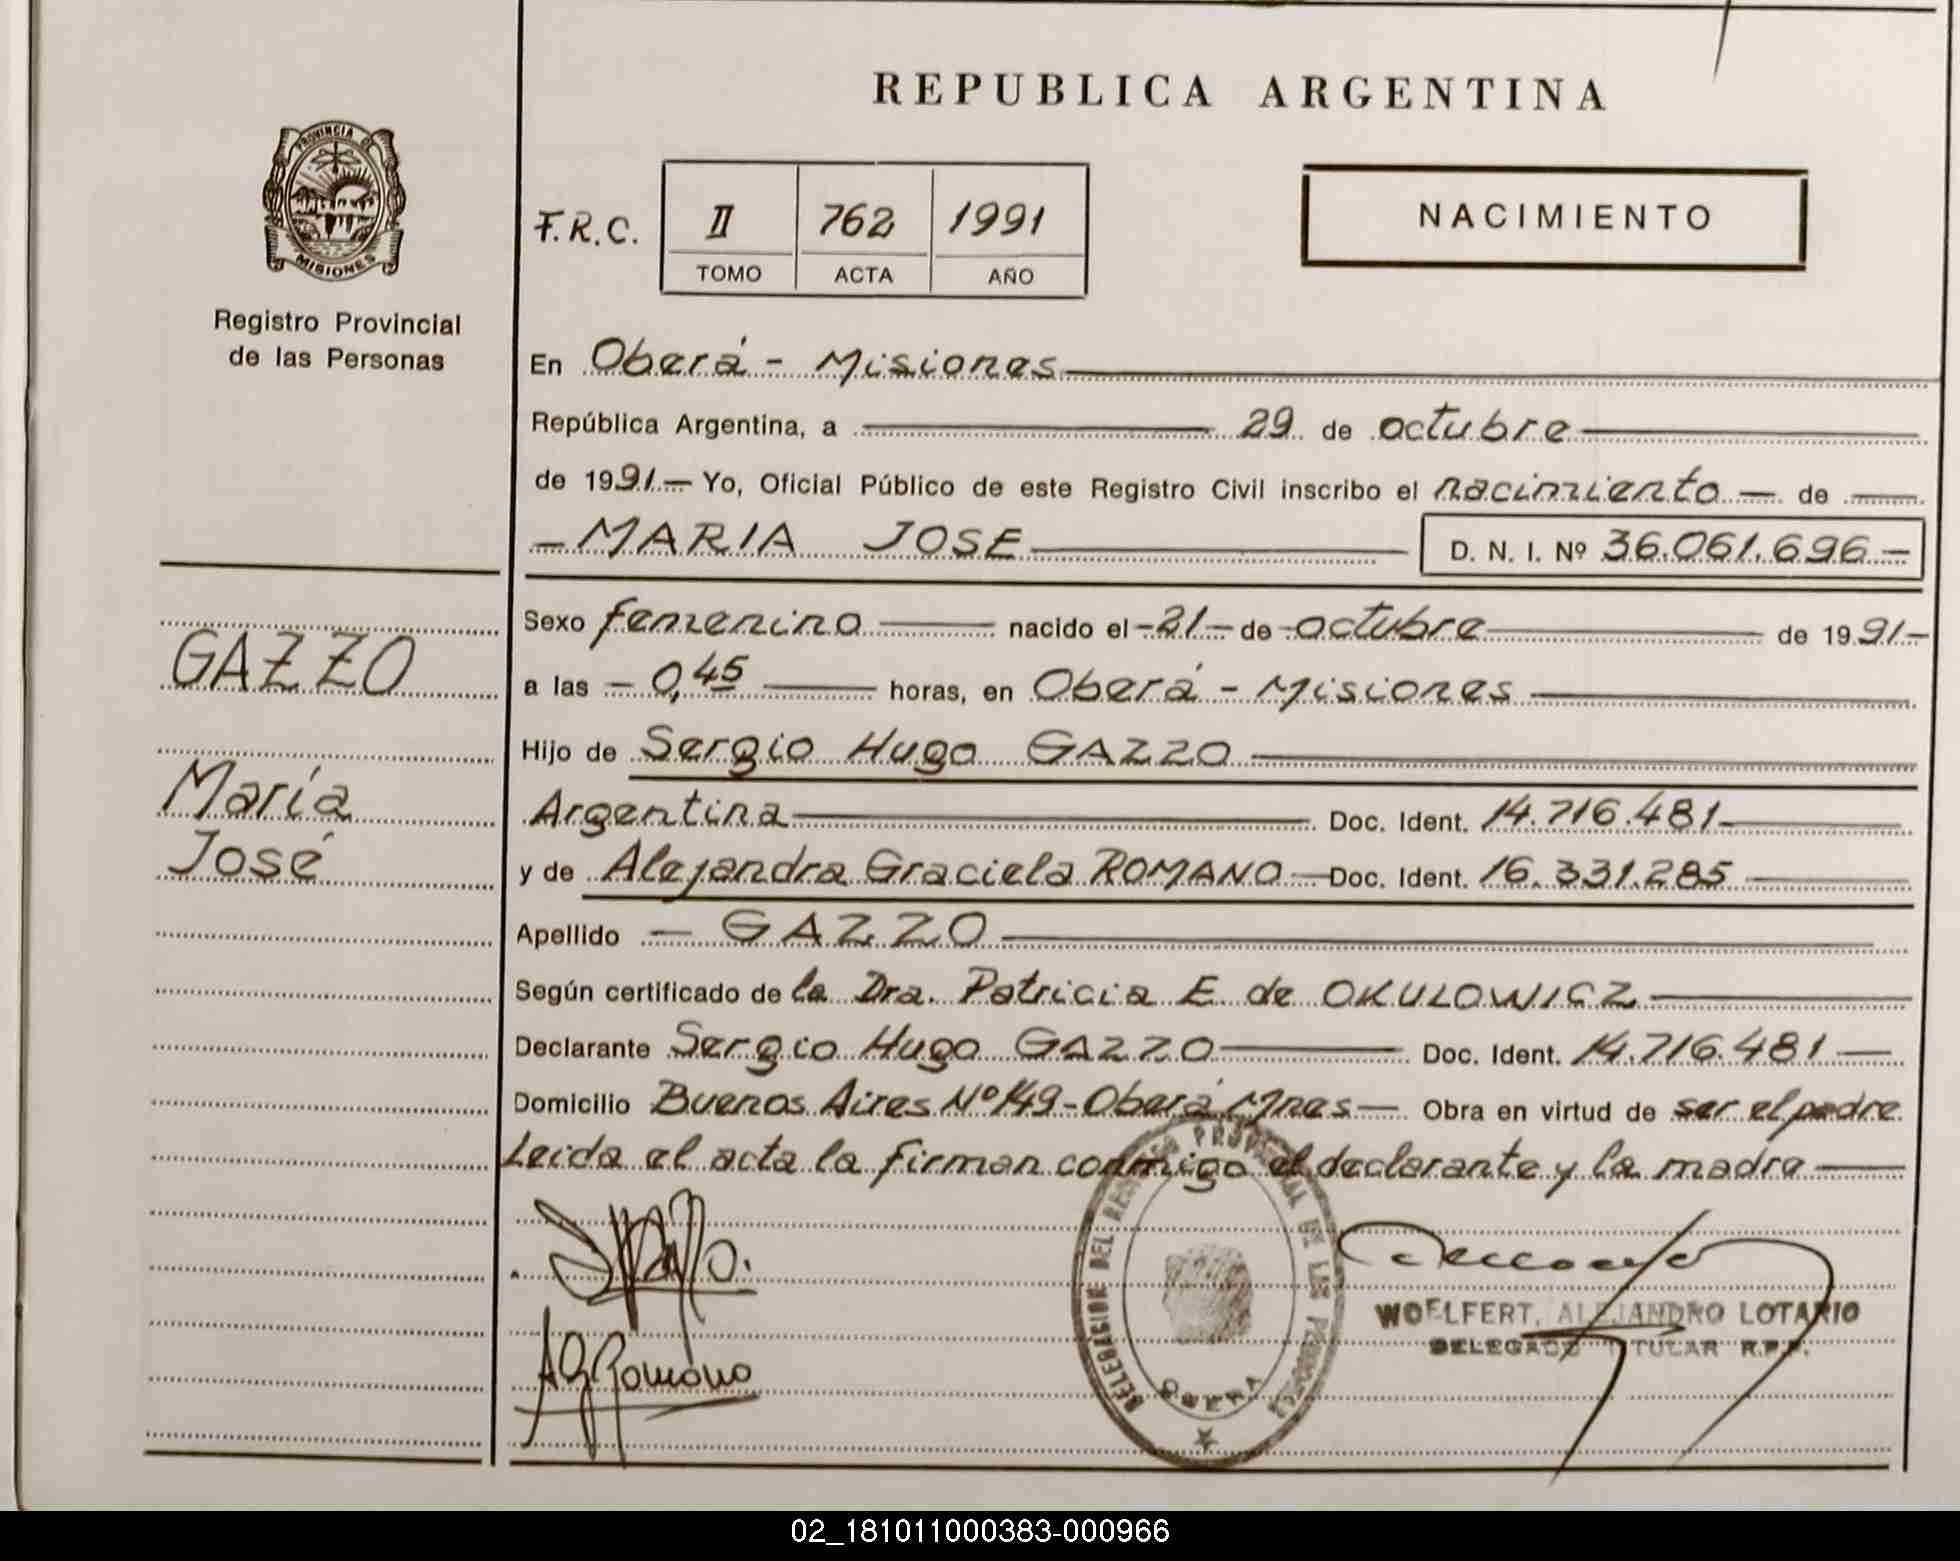 REPUBLICA ARGENTINA
PROVINCIA DE
MISIONES
Registro Provincial
de las Personas
F.R.C. II 762 1991
TOMO ACTA AÑO
NACIMIENTO
En Oberá - Misiones
República Argentina, a 29 de octubre
de 1991 — Yo, Oficial Público de este Registro Civil inscribo el nacimiento — de
— MARIA JOSE — D. N. I. Nº 36.061.696 —
GAZZO
María
José
Sexo femenino — nacido el - 21 - de octubre — de 1991 -
a las - 0,45 — horas, en Oberá - Misiones
Hijo de Sergio Hugo GAZZO
Argentina — Doc. Ident. 14.716.481 —
y de Alejandra Graciela ROMANO — Doc. Ident. 16.331.285 —
Apellido — GAZZO
Según certificado de la Dra. Patricia E. de OKULOWICZ
Declarante Sergio Hugo GAZZO — Doc. Ident. 14.716.481 —
Domicilio Buenos Aires Nº 149 - Oberá Mnes — Obra en virtud de ser el padre
Leida el acta la firman conmigo el declarante y la madre —
AGRomano
DELEGACION DEL REGISTRO PROVINCIAL DE LAS PERSONAS
OBERA
WOELFERT, ALEJANDRO LOTARIO
DELEGADO TITULAR R.P.P.
02_181011000383-000966